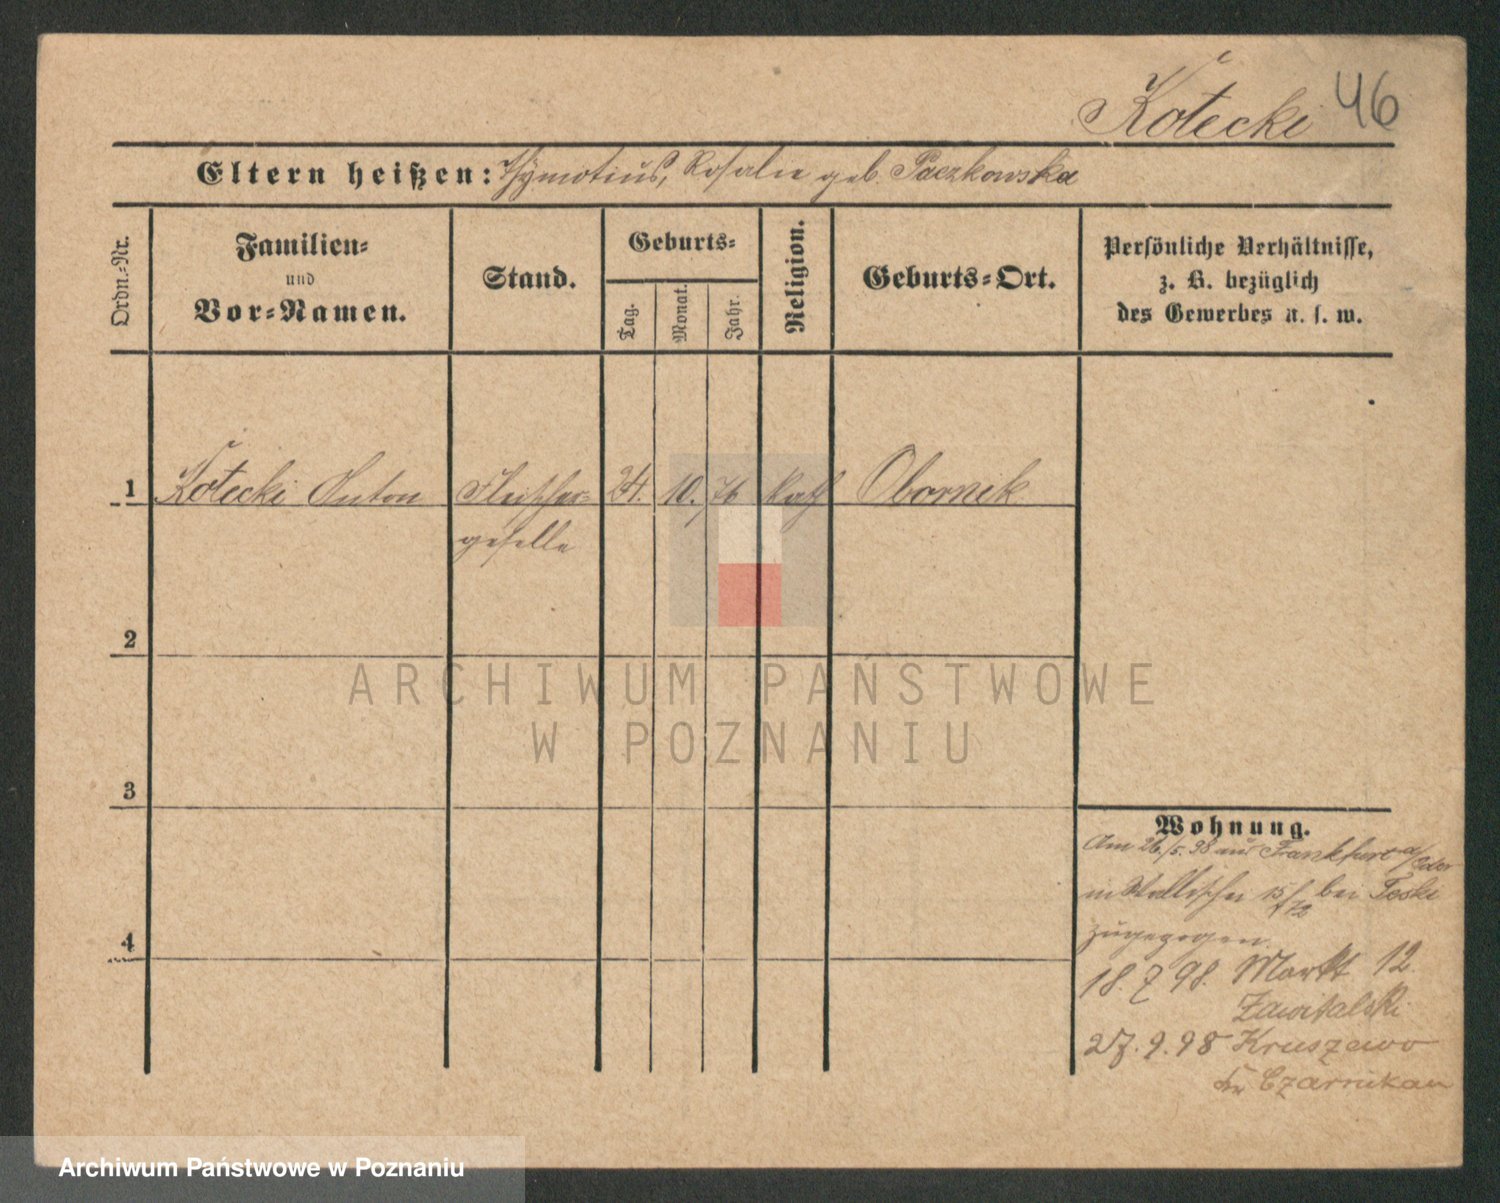 Kotecki 46
Eltern heißen: Thymotius, Rosalie geb. Paczkowska
Ordn.-Nr.
Familien-
und
Vor-Namen.
Stand.
Geburts-
Tag.
Monat.
Jahr.
Religion.
Geburts-Ort.
Persönliche Verhältnisse,
z. B. bezüglich
des Gewerbes u. s. w.
1 Kotecki Anton Fleischer- 24. 10. 76 Kath Obornik
geselle
2
3
4
ARCHIWUM PAŃSTWOWE
W POZNANIU
Wohnung.
Am 26./5. 98 aus Frankfurt a/Oder
in Wallischei 15/72 bei Teske
zugezogen.
18. 7 98. Markt 12.
Zawitalski
27. 9. 98 Kruszewo
Kr. Czarnikau
Archiwum Państwowe w Poznaniu